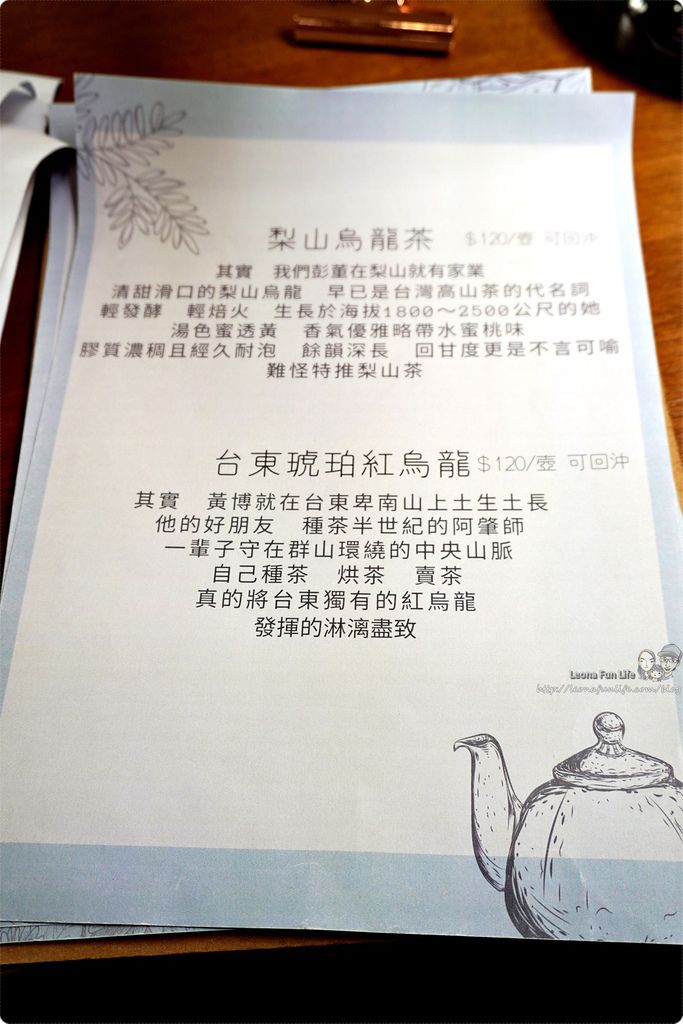 梨山烏龍茶 $120/壺 可回沖
其實 我們彭董在梨山就有家業
清甜滑口的梨山烏龍 早已是台灣高山茶的代名詞
輕發酵 輕焙火 生長於海拔1800～2500公尺的她
湯色蜜透黃 香氣優雅略帶水蜜桃味
膠質濃稠且經久耐泡 餘韻深長 回甘度更是不言可喻
難怪特推梨山茶
台東琥珀紅烏龍 $120/壺 可回沖
其實 黃博就在台東卑南山上土生土長
他的好朋友 種茶半世紀的阿肇師
一輩子守在群山環繞的中央山脈
自己種茶 烘茶 賣茶
真的將台東獨有的紅烏龍
發揮的淋漓盡致
Leona Fun Life
http://leonafunlife.com/blog